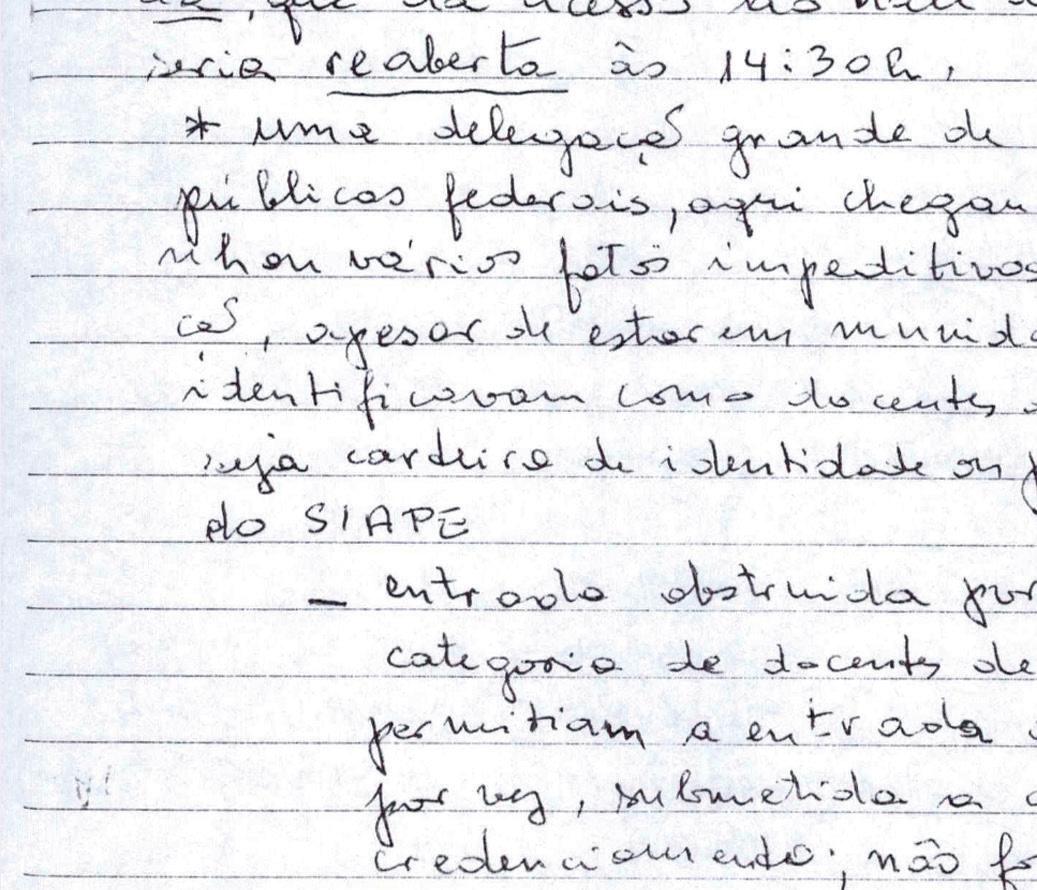 , que dá acesso ao
seria reaberta às 14:30h,
* uma delegação grande de
públicos federais, aqui chegan
nhou vários fatos impeditivos
ção, apesar de estarem munid
identificavam como docentes
seja carteira de identidade ou
do SIAPE
– entrada obstruida por
categoria de docentes de
permitiam a entrada
por vez, submetida a
credenciamento; não fo